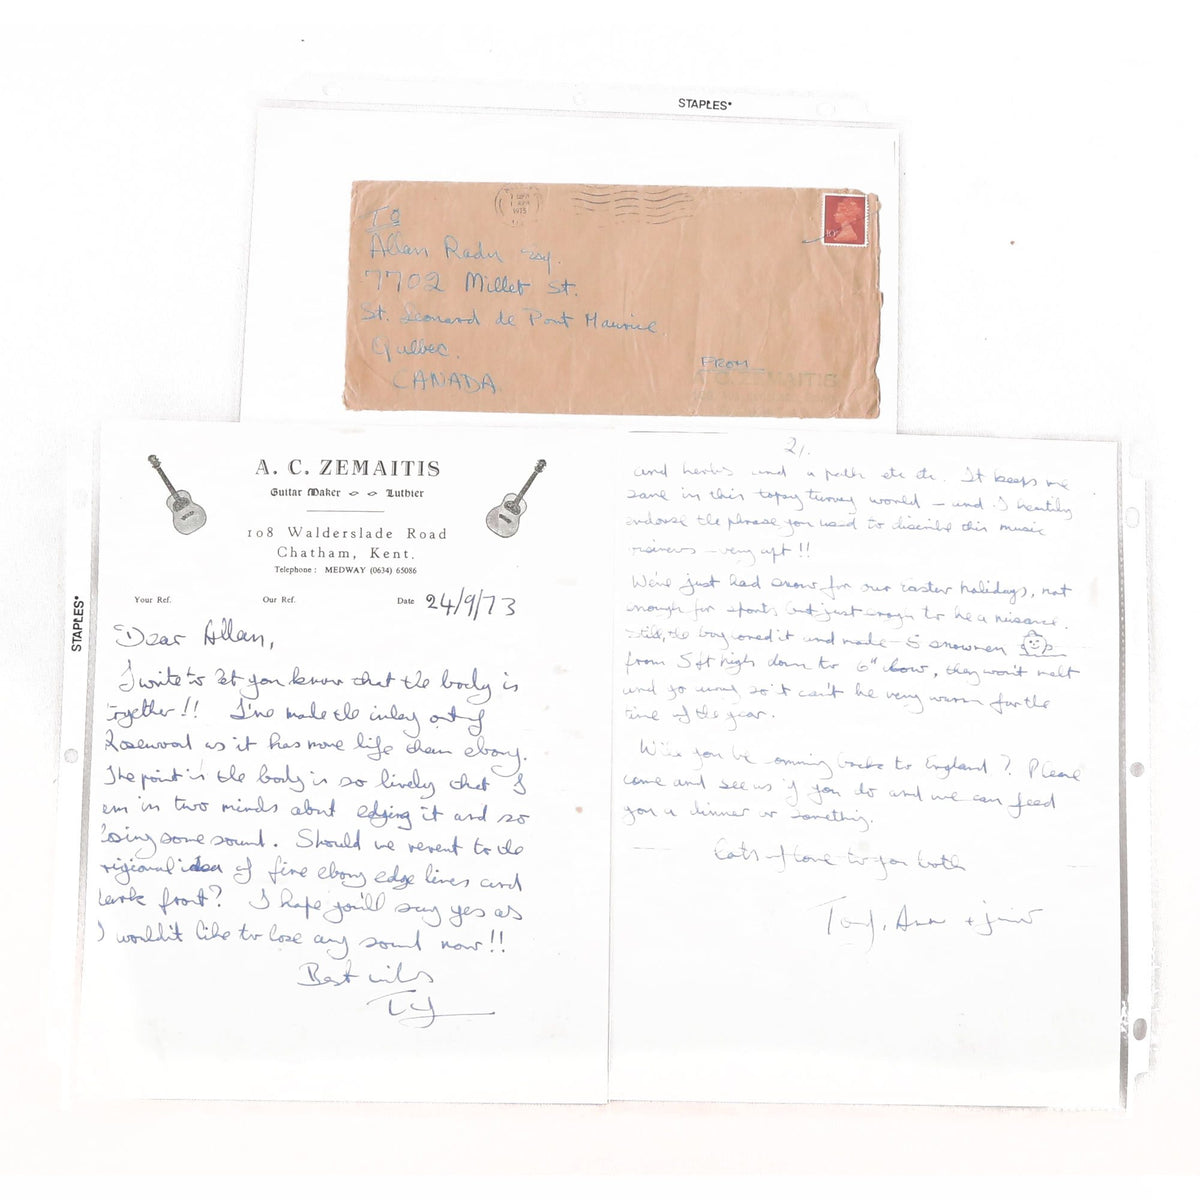 STAPLES
1975
10P
To
Allan Radu Esq.
7702 Millet St.
St. Leonard de Pont Maurice
Quebec.
CANADA
FROM
A. C. ZEMAITIS
A. C. ZEMAITIS
Guitar Maker Luthier
108 Walderslade Road
Chatham, Kent.
Telephone: MEDWAY (0634) 65086
Your Ref. Our Ref. Date 24/9/73
STAPLES
Dear Allan,
I write to let you know that the body is
together!! I've made the inlay out of
Rosewood as it has more life than ebony.
The point is the body is so lively that I
am in two minds about edging it and so
losing some sound. Should we revert to the
origional idea of fine ebony edge lines and
dark front? I hope you'll say yes as
I would'nt like to lose any sound now!!
Best wishes
Tony
2/.
and herbs and a path etc etc. It keeps me
sane in this topsy turvey world – and I heartily
endorse the phrase you used to discribe this music
– very apt!!
We've just had snow for our Easter holidays, not
enough for sports but just enough to be a nuisance.
Still, the boy and made 5 snowmen
from 5ft high down to 6", they won't melt
and go away so it can't be very warm for the
time of the year.
Will you be coming back to England? Please
come and see us if you do and we can feed
you a dinner or something.
Lots of love to you both
Tony, Ann + junior